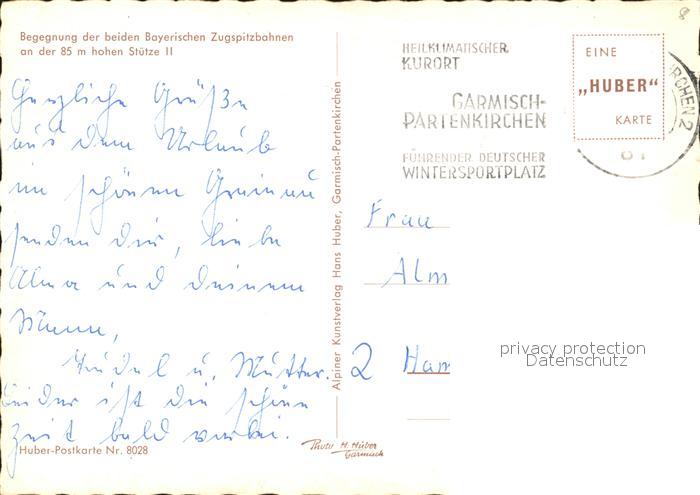 Begegnung der beiden Bayerischen Zugspitzbahnen
an der 85 m hohen Stütze II
Herzliche Grüße
aus dem Urlaub
im schönen Grainau
senden dir, liebe
Alma und deinem
Mann,
u. Mutter.
Leider ist die schöne
Zeit bald vorbei.
Huber-Postkarte Nr. 8028
Alpiner Kunstverlag Hans Huber, Garmisch-Partenkirchen
Photo H. Huber
Garmisch
HEILKLIMATISCHER
KURORT
GARMISCH-
PARTENKIRCHEN
FÜHRENDER DEUTSCHER
WINTERSPORTPLATZ
EINE
„HUBER“
KARTE
RCHEN 2
Frau
Alm
2 Ham
privacy protection
Datenschutz